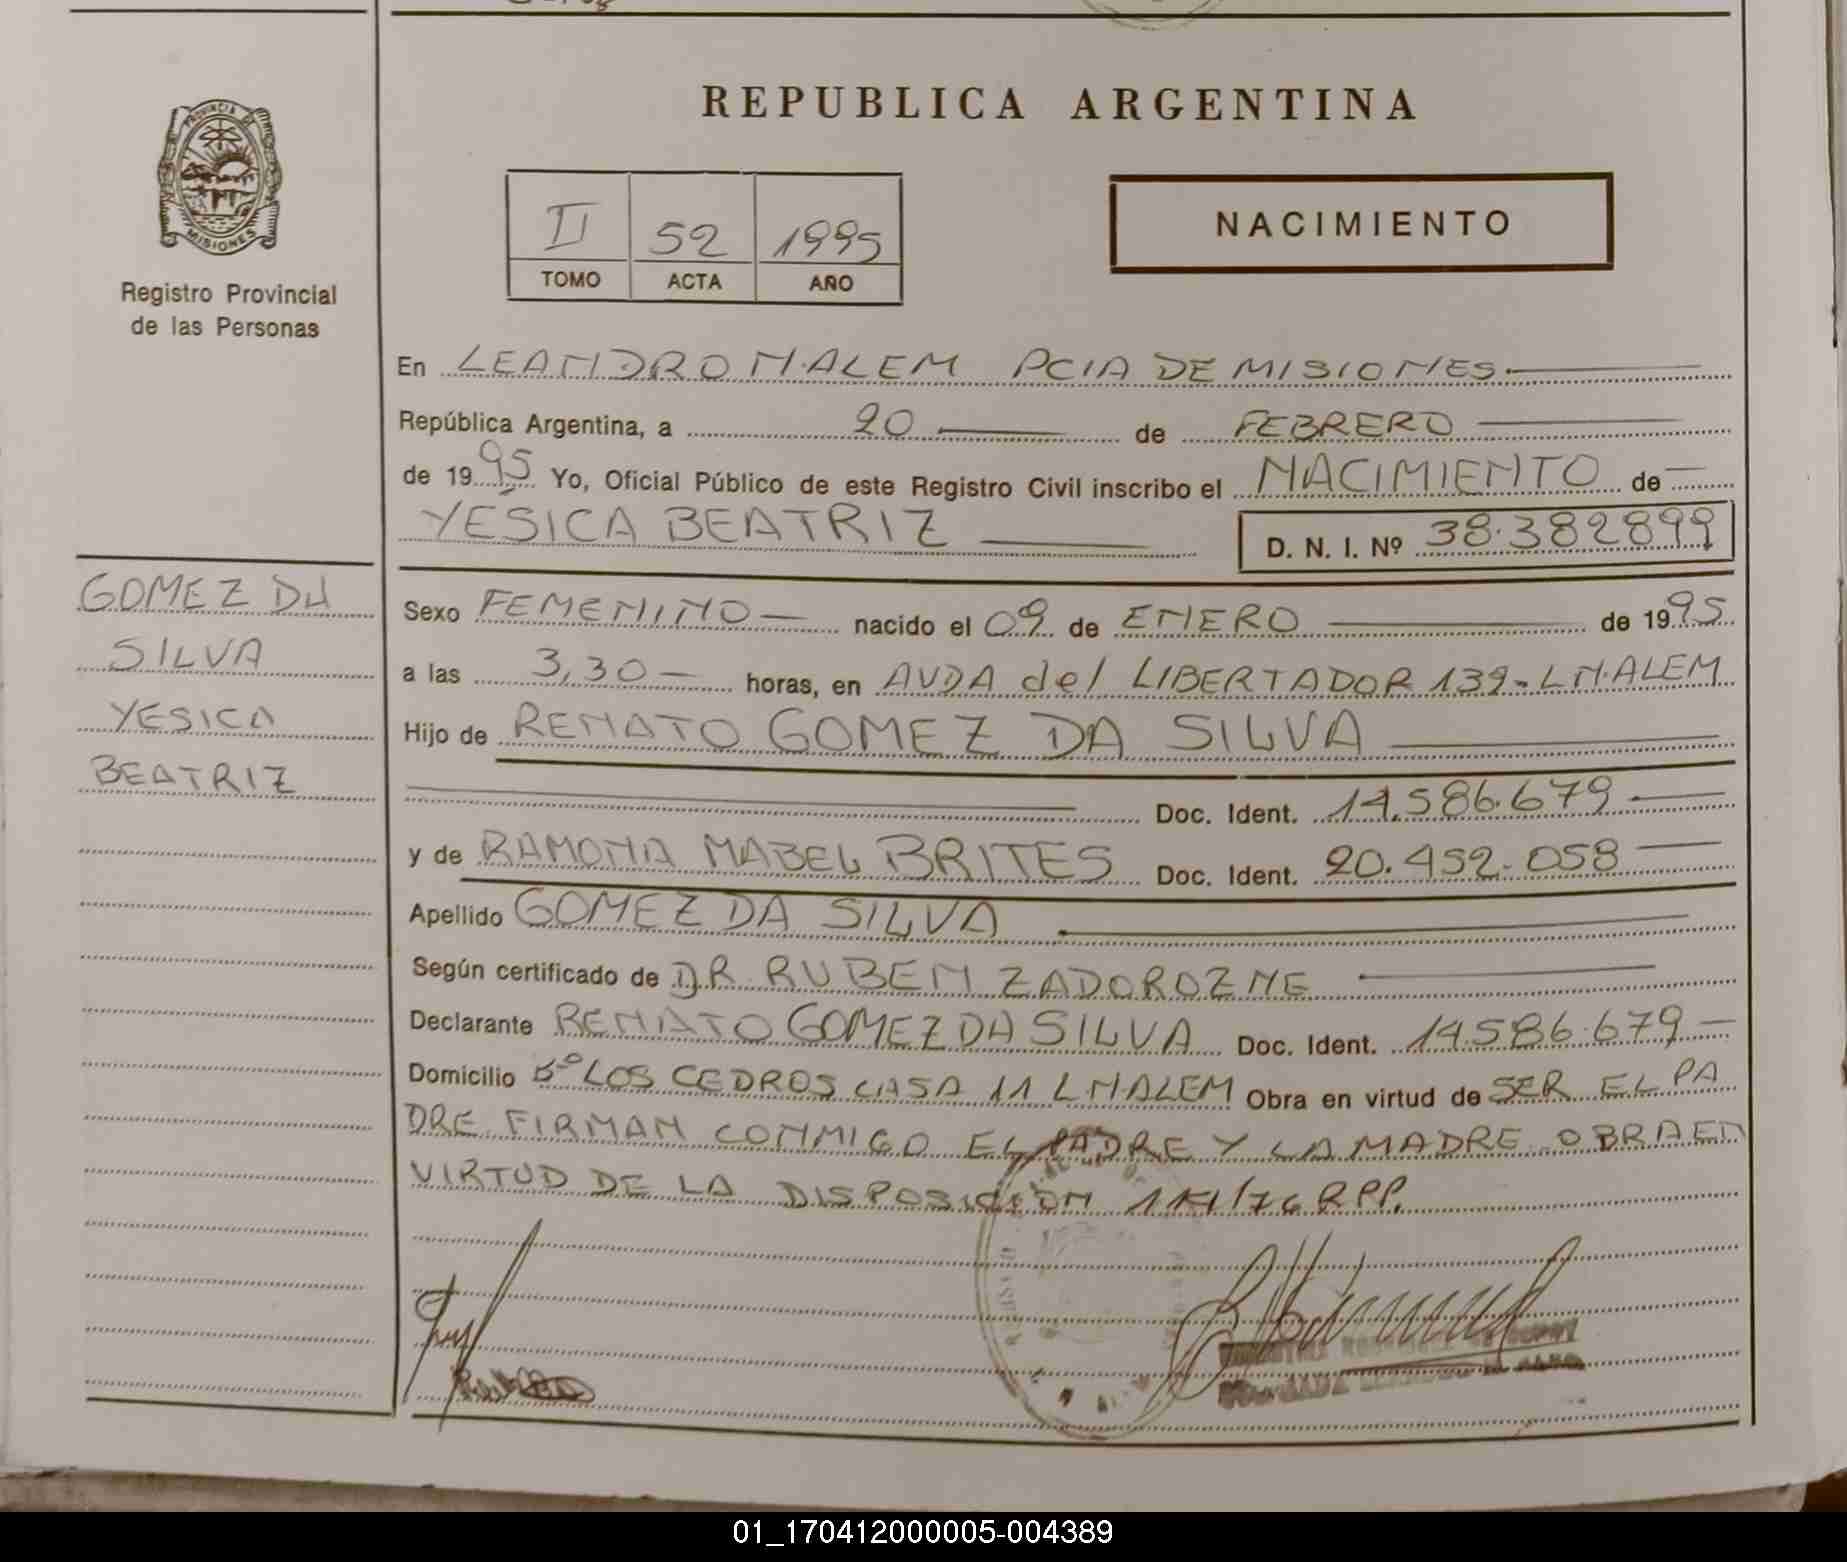 REPUBLICA ARGENTINA
PROVINCIA DE
MISIONES
Registro Provincial
de las Personas
II 52 1995
TOMO ACTA AÑO
NACIMIENTO
En LEANDRO N. ALEM PCIA DE MISIONES
República Argentina, a 20 de FEBRERO
de 1995 Yo, Oficial Público de este Registro Civil inscribo el NACIMIENTO de
YESICA BEATRIZ D. N. I. Nº 38.382899
GOMEZ DA
SILVA
YESICA
BEATRIZ
Sexo FEMENINO nacido el 09 de ENERO de 1995
a las 3,30 horas, en AVDA del LIBERTADOR 139-L N. ALEM
Hijo de RENATO GOMEZ DA SILVA
Doc. Ident. 14.586.679
y de RAMONA MABEL BRITES Doc. Ident. 20.452.058
Apellido GOMEZ DA SILVA
Según certificado de DR. RUBEN ZADOROZNE
Declarante RENATO GOMEZ DA SILVA Doc. Ident. 14.586.679
Domicilio Bº LOS CEDROS CASA 11 L N ALEM Obra en virtud de SER EL PA
DRE. FIRMAN CONMIGO EL PADRE Y LA MADRE. OBRA EN
VIRTUD DE LA DISPOSICION /76 RPP.
01_170412000005-004389